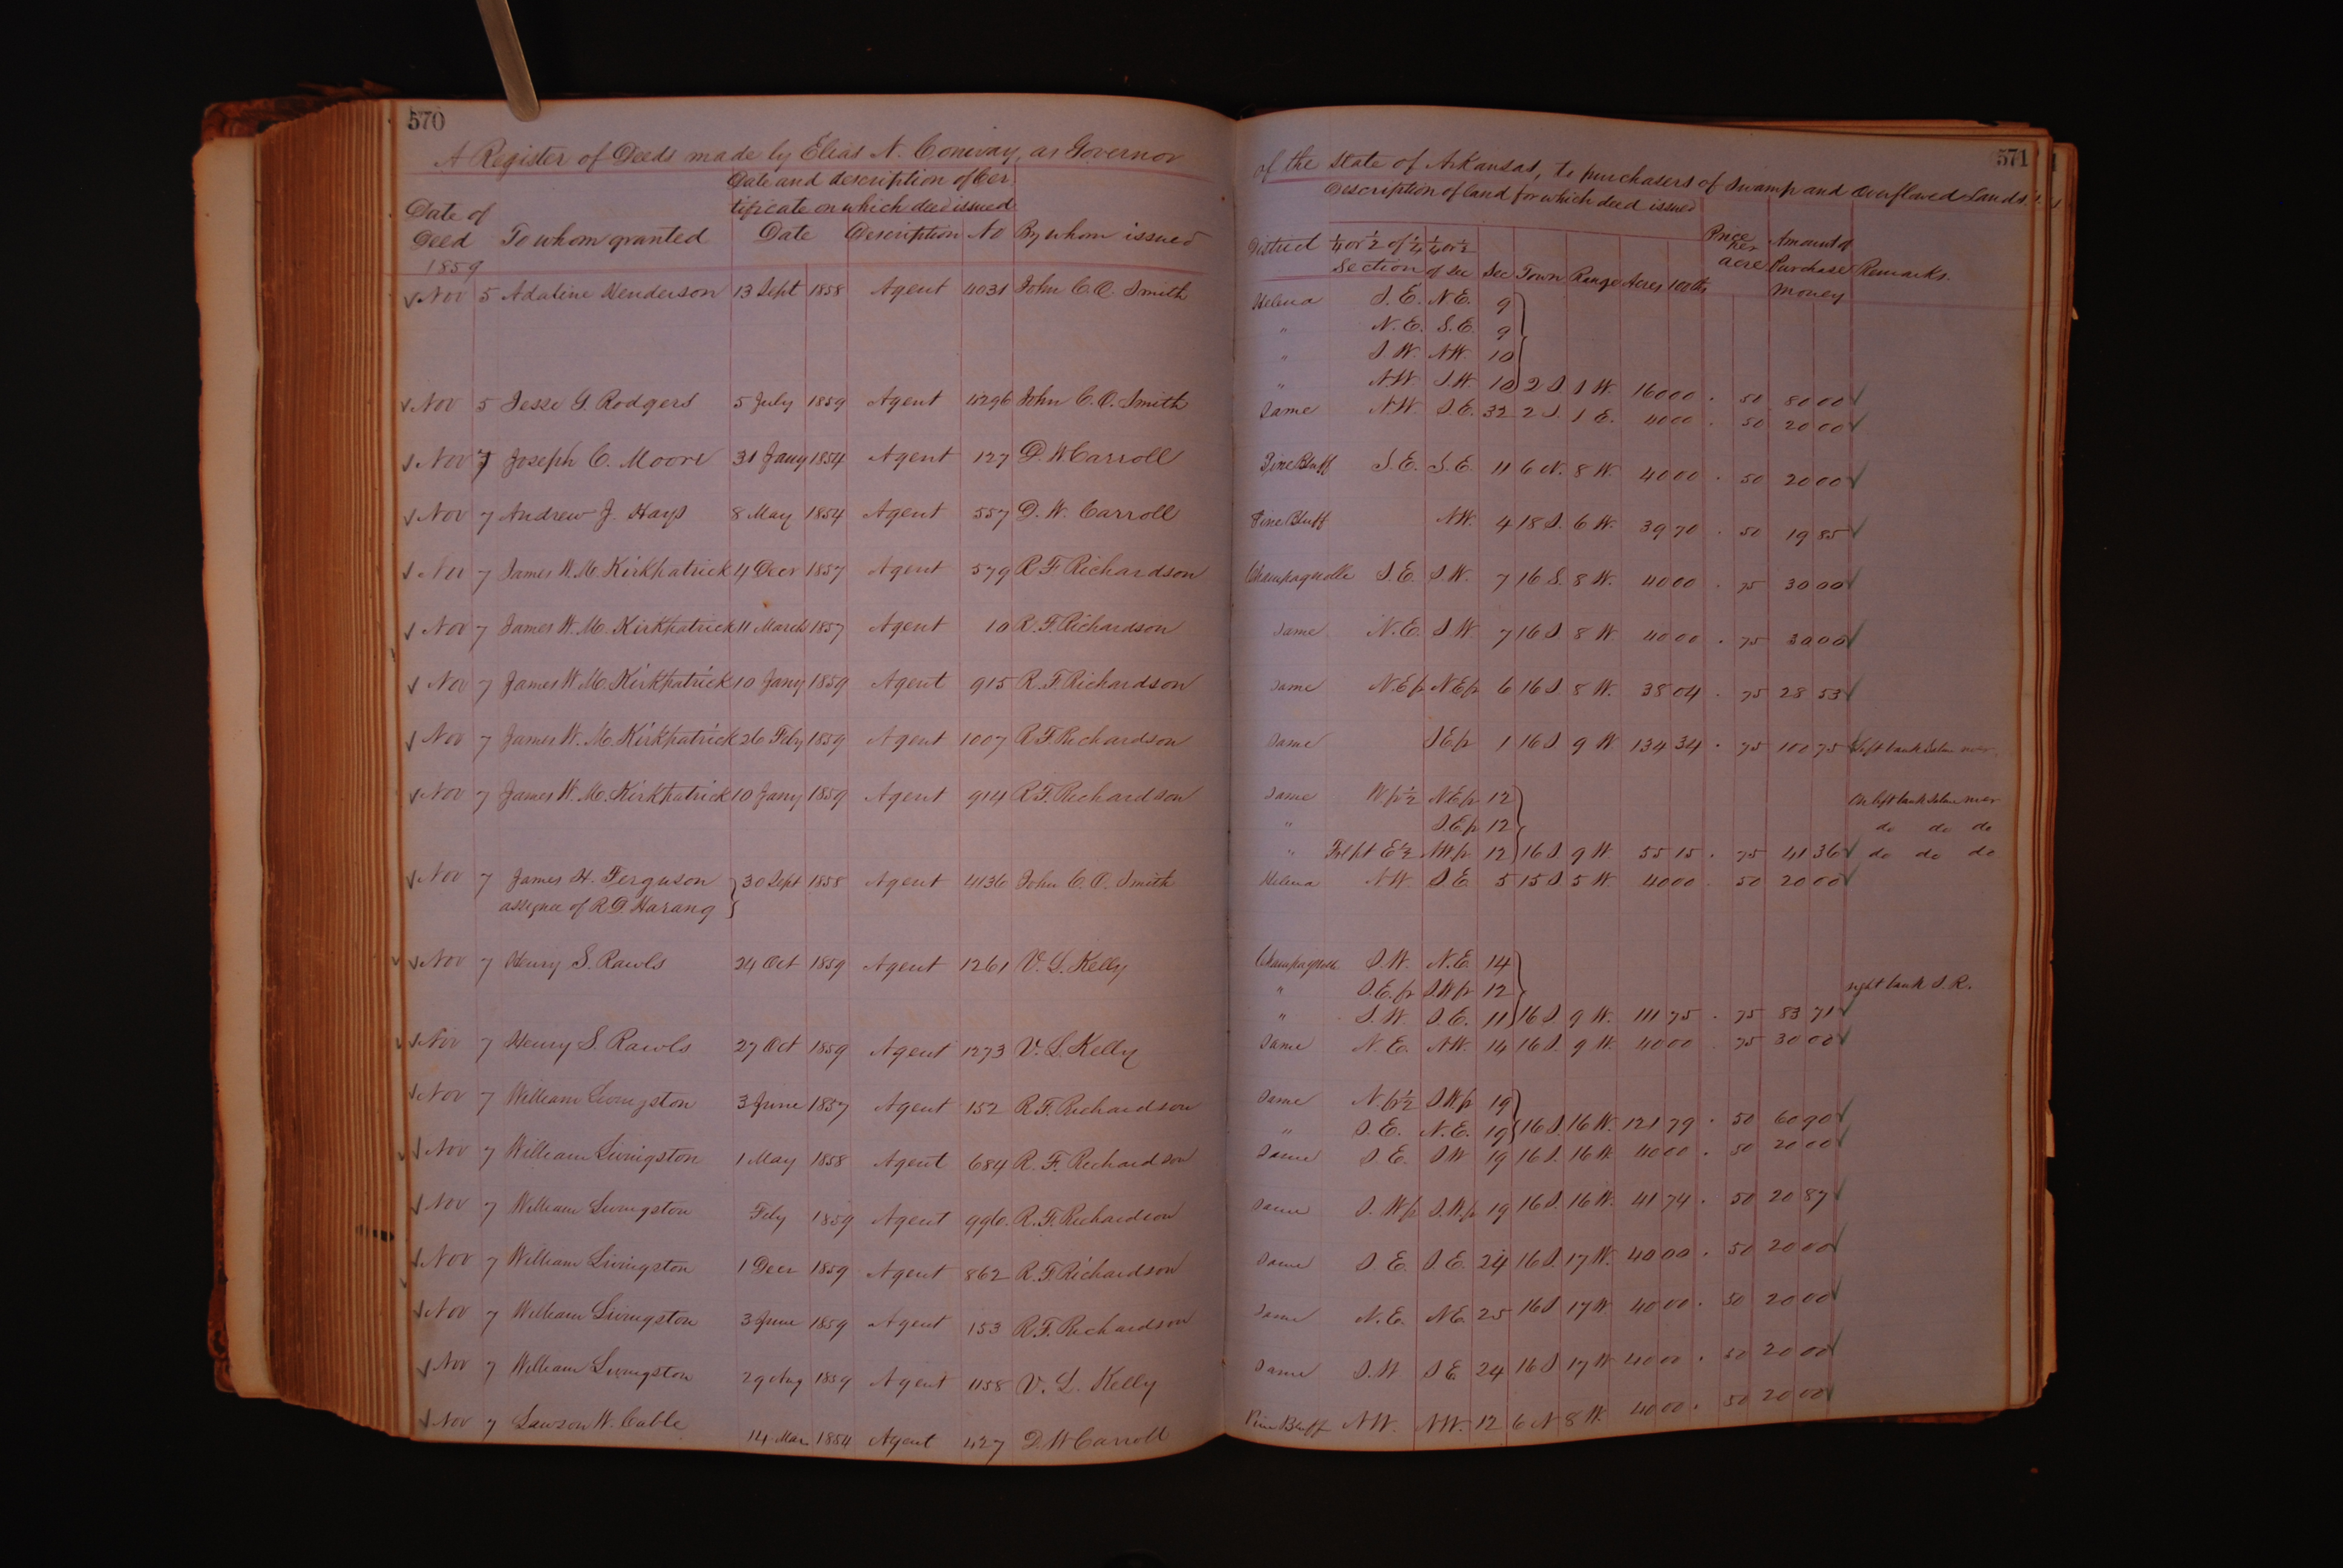 570
A Register of Deeds made by Elias N. Conway, as Governor
Date and description of Cer
tificate on which deed issued
Date of
Deed To whom granted Date Description No By whom issued
1859
Nov 5 Adaline Henderson 13 Sept 1858 Agent 4031 John C. O. Smith
Nov 5 Jesse G. Rodgers 5 July 1859 Agent 4296 John C. O. Smith
Nov 7 Joseph C. Moore 31 Jany 1854 Agent 127 D. W Carroll
Nov 7 Andrew J. Hays 8 May 1854 Agent 557 D. W. Carroll
Nov 7 James W. M. Kirkpatrick 4 Decr 1857 Agent 579 R F Richardson
Nov 7 James W. M. Kirkpatrick 11 March 1857 Agent 10 R. F. Richardson
Nov 7 James W. M. Kirkpatrick 10 Jany 1859 Agent 915 R. F. Richardson
Nov 7 James W. M. Kirkpatrick 26 Feby 1859 Agent 1007 R F. Richardson
Nov 7 James W. M. Kirkpatrick 10 Jany 1859 Agent 914 R F. Richardson
Nov 7 James H. Ferguson 30 Sept 1858 Agent 4136 John C. O. Smith
assignee of R D. Harang
Nov 7 Henry S. Rawls 24 Oct 1859 Agent 1261 V. L. Kelly
Nov 7 Henry S. Rawls 27 Oct 1859 Agent 1273 V. L. Kelly
Nov 7 William Livingston 3 June 1857 Agent 152 R F. Richardson
Nov 7 William Livingston 1 May 1858 Agent 684 R. F. Richardson
Nov 7 William Livingston Feby 1859 Agent 996. R. F. Richardson
Nov 7 William Livingston 1 Decr 1859 Agent 862 R. F. Richardson
Nov 7 William Livingston 3 June 1859 Agent 153 R. F. Richardson
Nov 7 William Livingston 29 Aug 1859 Agent 1158 V. L. Kelly
Nov 7 Lawson W. Cable 14 Mar 1854 Agent 427 D. W Carroll
571
of the State of Arkansas, to purchasers of Swamp and Overflowed Lands.
Description of land for which deed issued
District 1/4 or 1/2 of 1/4 Section 1/4 or 1/2 of Sec Sec Town Range Acres 100ths Price per acre Amount of Purchase Money Remarks.
Helena S. E. N E. 9
" N. E. S. E. 9
" S. W. N W. 10
" N. W. S. W. 10 2 S 1 W. 160 00 . 50 80 00
Same N. W. S E. 32 2 S. 1 E. 40 00 . 50 20 00
Pine Bluff S. E. S. E. 11 6 N. 8 W. 40 00 . 50 20 00
Pine Bluff N W. 4 18 S. 6 W. 39 70 . 50 19 85
Champagnolle S. E. S W. 7 16 S. 8 W. 40 00 . 75 30 00
Same N. E. S W. 7 16 S 8 W. 40 00 . 75 30 00
Same N. E fr N E fr 6 16 S 8 W. 38 04 . 75 28 53
Same S E fr 1 16 S 9 W 134 34 . 75 100 75 Left bank Saline
Same W fr 1/2 N. E fr 12 On left bank Saline river
" S. E fr 12 do do do
" E 1/2 N W fr 12 16 S 9 W. 55 15 . 75 41 36 do do do
Helena N W. S. E 5 15 S 5 W. 40 00 . 50 20 00
S. W. N. E. 14
" S. E. fr S W fr 12 right bank S. R.
" S. W. S. E. 11 16 S. 9 W. 111 75 . 75 83 71
Same N. E. N W. 14 16 S. 9 W. 40 00 . 75 30 00
Same N. fr 1/2 S. W fr 19
" S. E. N. E. 19 16 S. 16 W. 121 79 . 50 60 90
Same S. E. S W 19 16 S. 16 W. 40 00 . 50 20 00
Same S. W fr S. W. fr 19 16 S. 16 W. 41 74 . 50 20 87
Same S E. S. E. 24 16 S. 17 W. 40 00 . 50 20 00
Same N. E. N E. 25 16 S 17 W 40 00 . 50 20 00
Same S. W S E. 24 16 S 17 W 40 00 . 50 20 00
Pine Bluff N W. N W. 12 6 N 8 W. 40 00 . 50 20 00